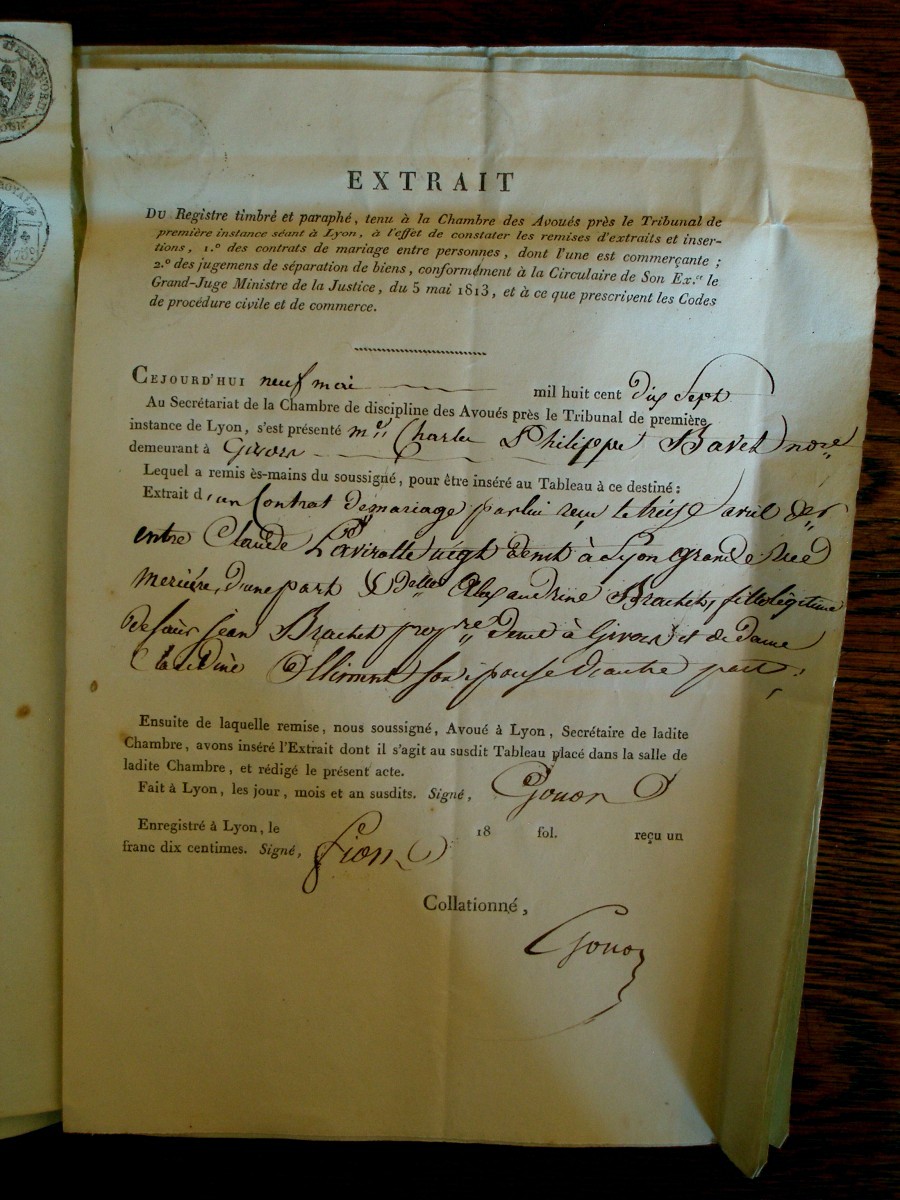 EXTRAIT
DU Registre timbré et paraphé, tenu à la Chambre des Avoués près le Tribunal de
première instance séant à Lyon, à l'effet de constater les remises d'extraits et inser-
tions, 1.º des contrats de mariage entre personnes, dont l'une est commerçante ;
2.º des jugemens de séparation de biens, conformément à la Circulaire de Son Ex.ce le
Grand-Juge Ministre de la Justice, du 5 mai 1813, et à ce que prescrivent les Codes
de procédure civile et de commerce.
CEJOURD'HUI neuf mai mil huit cent dix Sept
Au Secrétariat de la Chambre de discipline des Avoués près le Tribunal de première
instance de Lyon, s'est présenté me Charles Philippe Bavet nore
demeurant à Givors
Lequel a remis ès-mains du soussigné, pour être inséré au Tableau à ce destiné :
Extrait d'un Contrat de mariage par lui reçu le treize avril der
entre Claude Lavirotte négt demt à Lyon grande rue
merciere, d'une part & Delle Alexandrine Brachet, fille légitime
de Jean Brachet propre demt à Givors et de dame
Claudine son épouse d'autre part
Ensuite de laquelle remise, nous soussigné, Avoué à Lyon, Secrétaire de ladite
Chambre, avons inséré l'Extrait dont il s'agit au susdit Tableau placé dans la salle de
ladite Chambre, et rédigé le présent acte.
Fait à Lyon, les jour, mois et an susdits. Signé, Gonon
Enregistré à Lyon, le 18 fol. reçu un
franc dix centimes. Signé,
Collationné,
Gonon